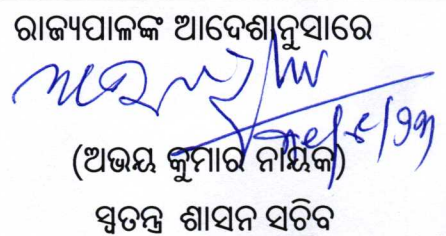 ରାଜ୍ୟପାଳଙ୍କ ଆଦେଶାନୁସାରେ
(ଅଭୟ କୁମାର ନାୟକ)
ସ୍ୱତନ୍ତ୍ର ଶାସନ ସଚିବ